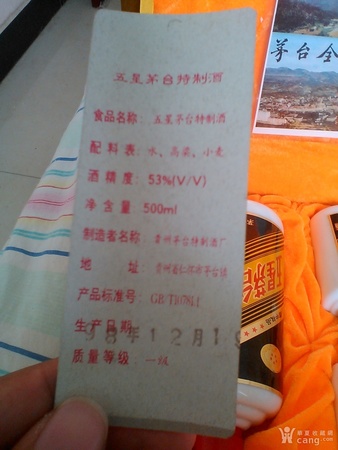 五星茅台特制酒
食品名称：五星茅台特制酒
配料表：水、高粱、小麦
酒精度：53%(V/V)
净含量：500ml
制造者名称：贵州茅台特制酒厂
地 址：贵州省仁怀市茅台镇
产品标准号：GB/T10781.1
生产日期
98年12月19
质量等级：一级
茅台全
五星茅台
华夏收藏网
cang.com